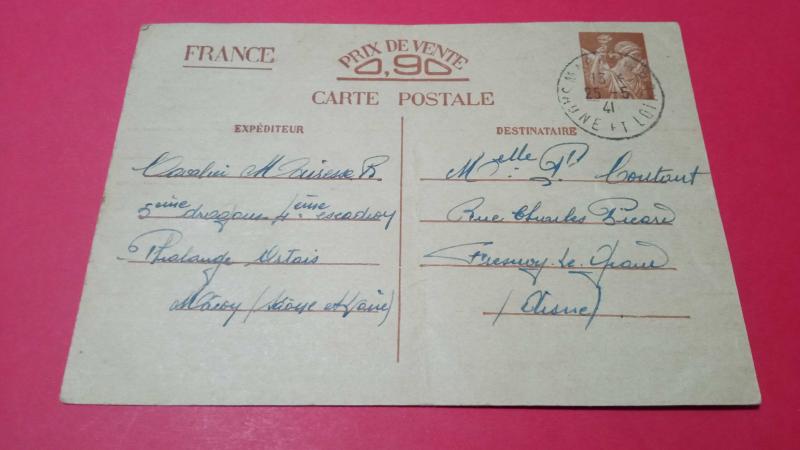 FRANCE
PRIX DE VENTE
0,90
CARTE POSTALE
13
25 - 5
41
SAONE ET LOI
EXPÉDITEUR
Cavalier M
5ème dragons 4ème escadron
Phalange Artois
Mâcon (Saône et Loire)
DESTINATAIRE
Melle P. Coutant
Rue Charles Picard
Fresnoy-Le-Grand
(Aisne)